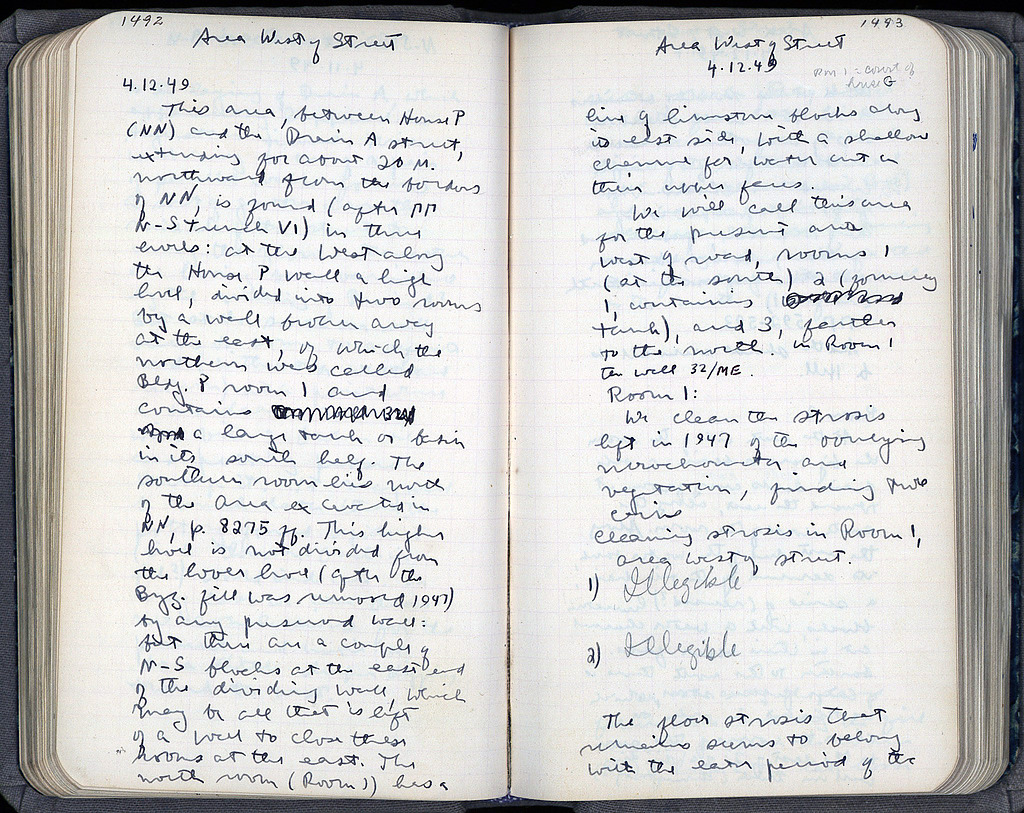 1492
Area West of Street
4.12.49
This area, between House P
(NN) and the Drain A street,
extending for about 20 M.
northward from the borders
of NN, is found (after ΠΠ
N-S trench VI) in three
levels: at the West along
the House P wall a high
level, divided into two rooms
by a wall broken away
at the east, of which the
northern was called
Bldg. P room 1 and
contains
a large tank or basin
in its south half. The
southern room lies north
of the area excavated in
NN, p. 8275 ff. This higher
level is not divided from
the lower level (after the
Byz. fill was removed 1947)
by any preserved wall:
but there are a couple of
N-S blocks at the east end
of the dividing wall, which
may be all that is left
of a wall to close these
rooms at the east. The
north room (Room 1) has a
1493
Area West of Street
4.12.49
rm 1 = court of
house G
line of limestone blocks along
its east side, with a shallow
channel for water cut in
their upper faces.
We will call this area
for the present area
west of road, rooms 1
(at the south) 2 (formerly
1, contains
tank), and 3, farther
to the north. in Room 1
the well 32/ME.
Room 1:
We clean the strosis
left in 1947 of the overlying
and
vegetation, finding two
coins
cleaning strosis in Room 1,
area west of street.
1) Illegible
2) Illegible
The floor strosis that
remains seems to belong
with the later period of the